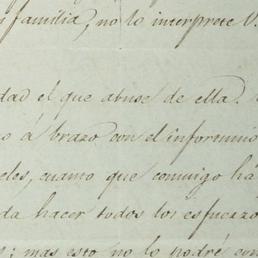 familia, no lo interprete V.
dad el que abuse de ella.
o á brazo con el infortunio
eles, cuanto que conmigo há
da hacer todos los esfuerzo
; mas esto no lo podré con